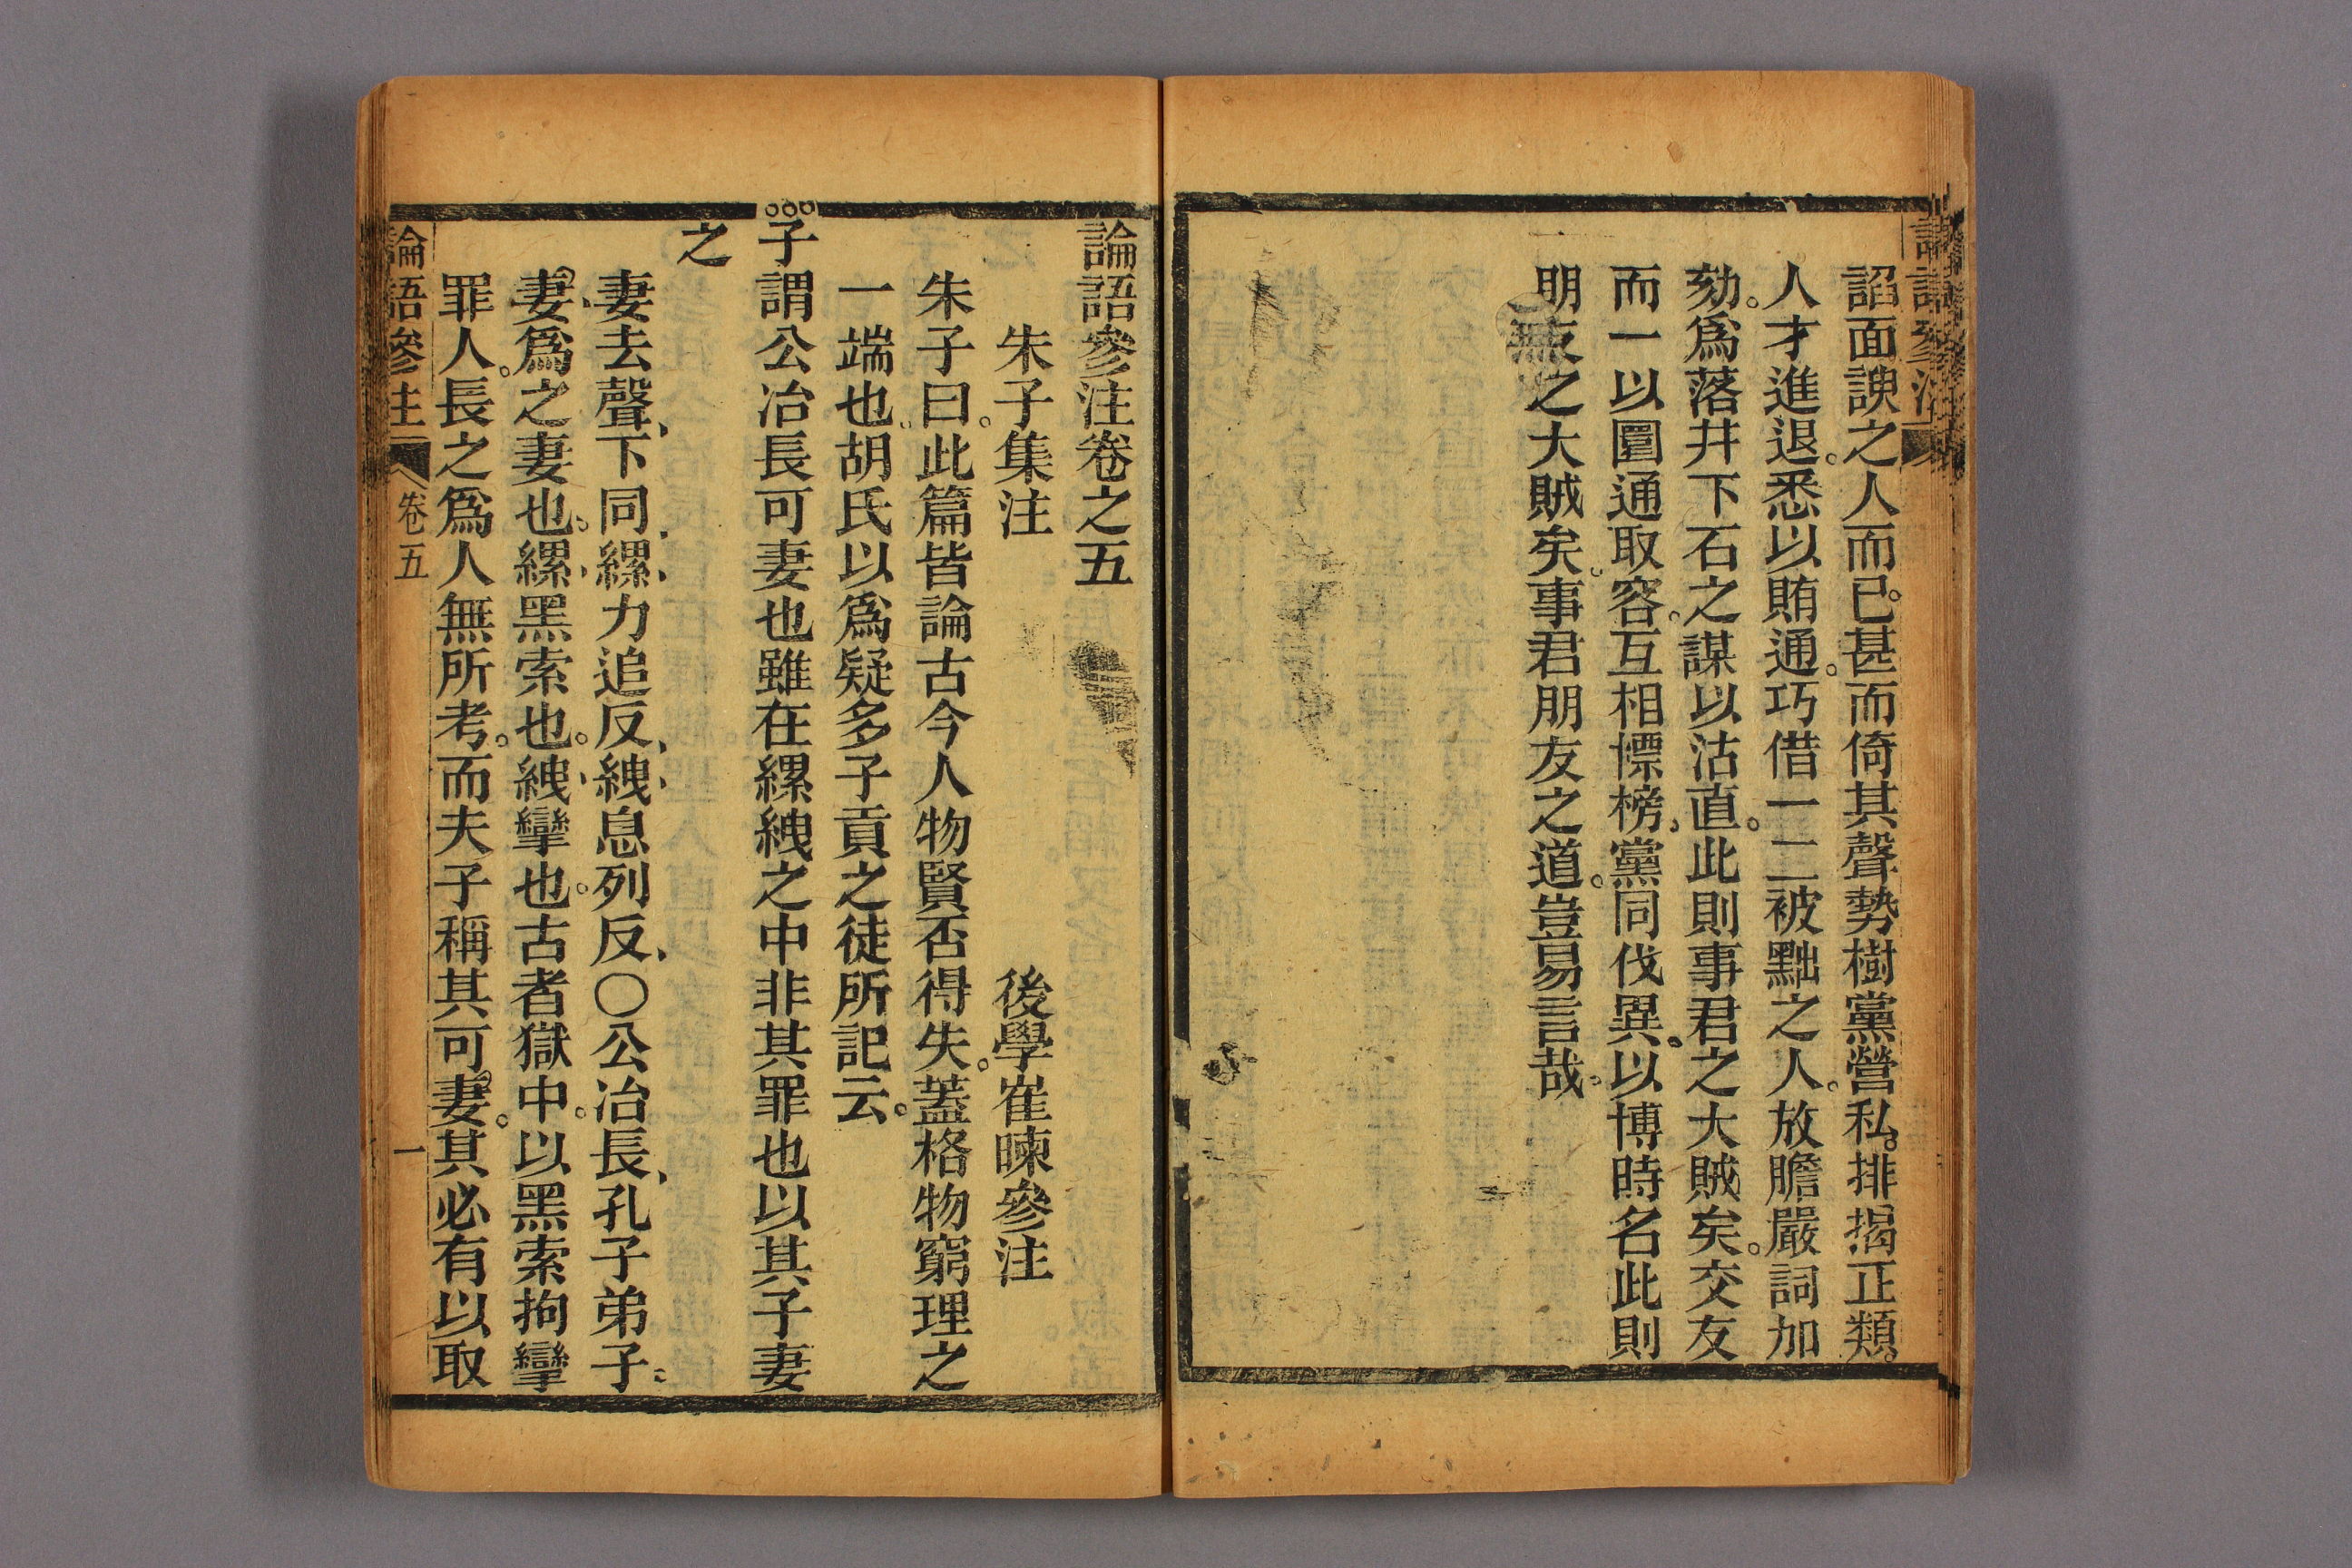 諂面諛之人而已。甚而倚其聲勢樹黨營私。排揭正類。
人才進退。悉以賄通。巧借一二被黜之人。放膽嚴詞加
劾。爲落井下石之謀以沽直。此則事君之大賊矣。交友
而一以圓通取容。互相慓榜。黨同伐異。以博時名此則
明友之大賊矣。事君朋友之道。豈易言哉。
論語參注卷之五
朱子集注 後學崔暕參注
朱子曰。此篇皆論古今人物賢否得失。蓋格物窮理之
一端也。胡氏以爲疑多子貢之徒所記云。
子謂公冶長可妻也雖在縲絏之中非其罪也以其子妻
之
妻去聲、下同、縲、力追反、絏、息列反、○公冶長、孔子弟子。
妻、爲之妻也。縲、黑索也。絏、攣也。古者獄中。以黑索拘攣
罪人。長之爲人無所考。而夫子稱其可妻。其必有以取
論語參注 卷五 一